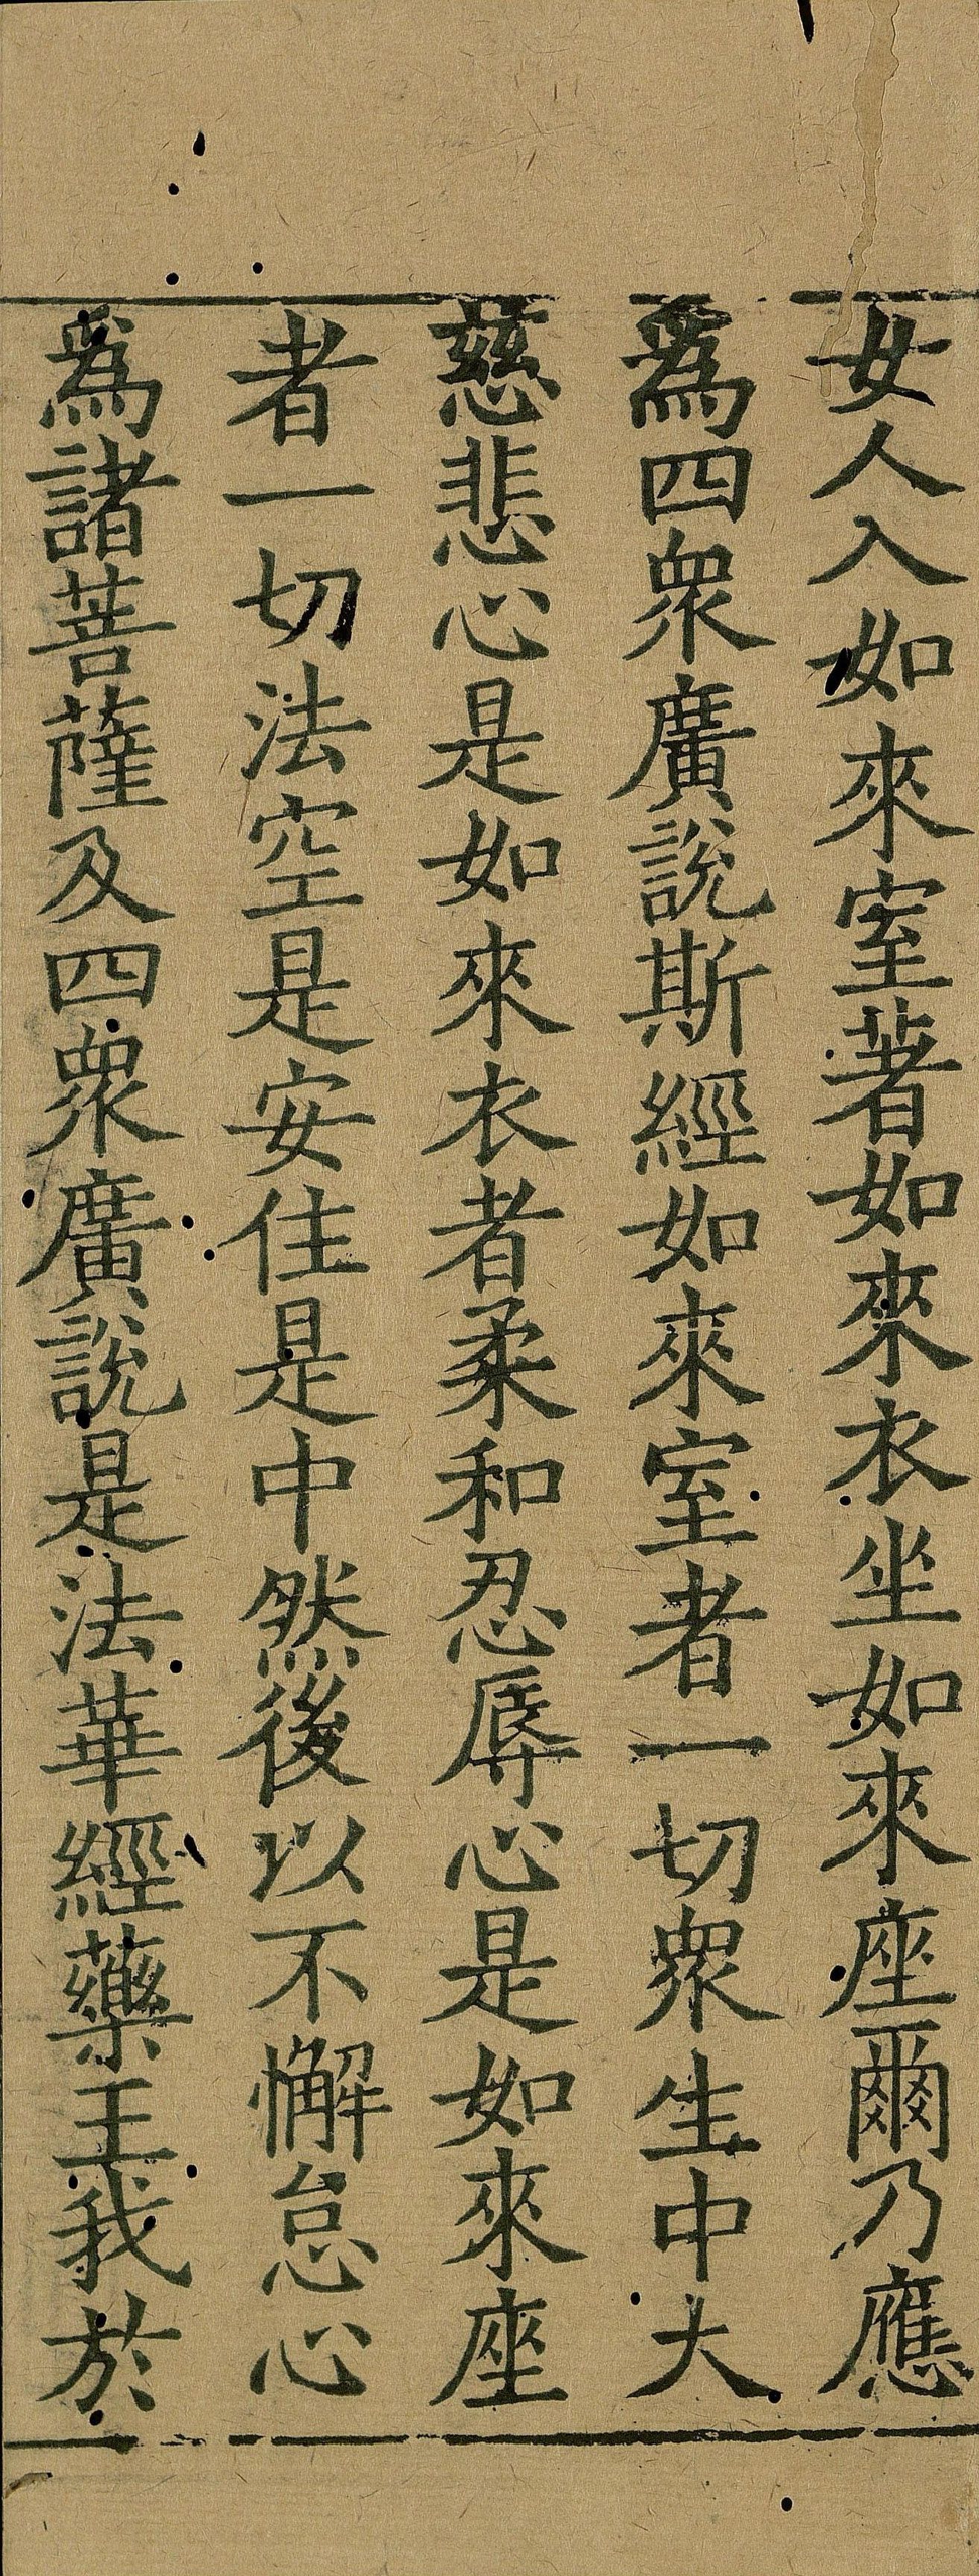 女人入如來室著如來衣坐如來座爾乃應
爲四衆廣說斯經如來室者一切衆生中大
慈悲心是如來衣者柔和忍辱心是如來座
者一切法空是安住是中然後以不懈怠心
爲諸菩薩及四衆廣說是法華經藥王我於